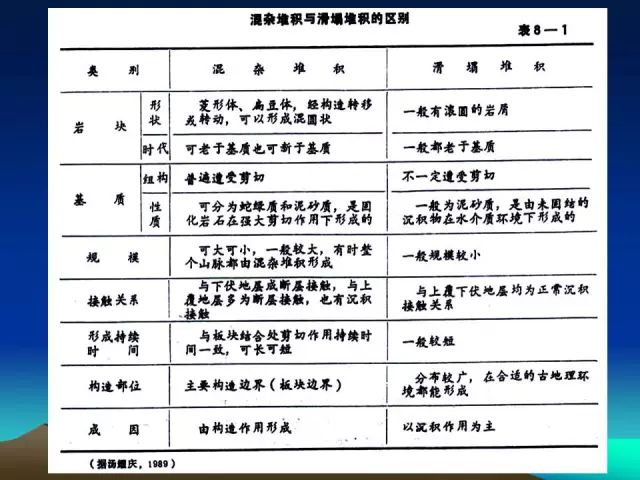 混杂堆积与滑塌堆积的区别
表8—1
类 别 混 杂 堆 积 滑 塌 堆 积
岩 块
形状
菱形体、扁豆体，经构造转移
或转动，可以形成混圆状
一般有滚圆的岩质
时代 可老于基质也可新于基质 一般都老于基质
基 质
组构 普遍遭受剪切 不一定遭受剪切
性质
可分为蛇绿质和泥砂质，是固
化岩石在强大剪切作用下形成的
一般为泥砂质，是由未固结的
沉积物在水介质环境下形成的
规 模
可大可小，一般较大，有时整
个山脉都由混杂堆积形成
一般规模较小
接触关系
与下伏地层成断层接触，与上
覆地层多为断层接触，也有沉积
接触
与上覆下伏地层均为正常沉积
接触关系
形成持续
时 间
与板块结合处剪切作用持续时
间一致，可长可短
一般较短
构造部位 主要构造边界（板块边界）
分布较广，在合适的古地理环
境都能形成
成 因 由构造作用形成 以沉积作用为主
（据汤耀庆，1989）